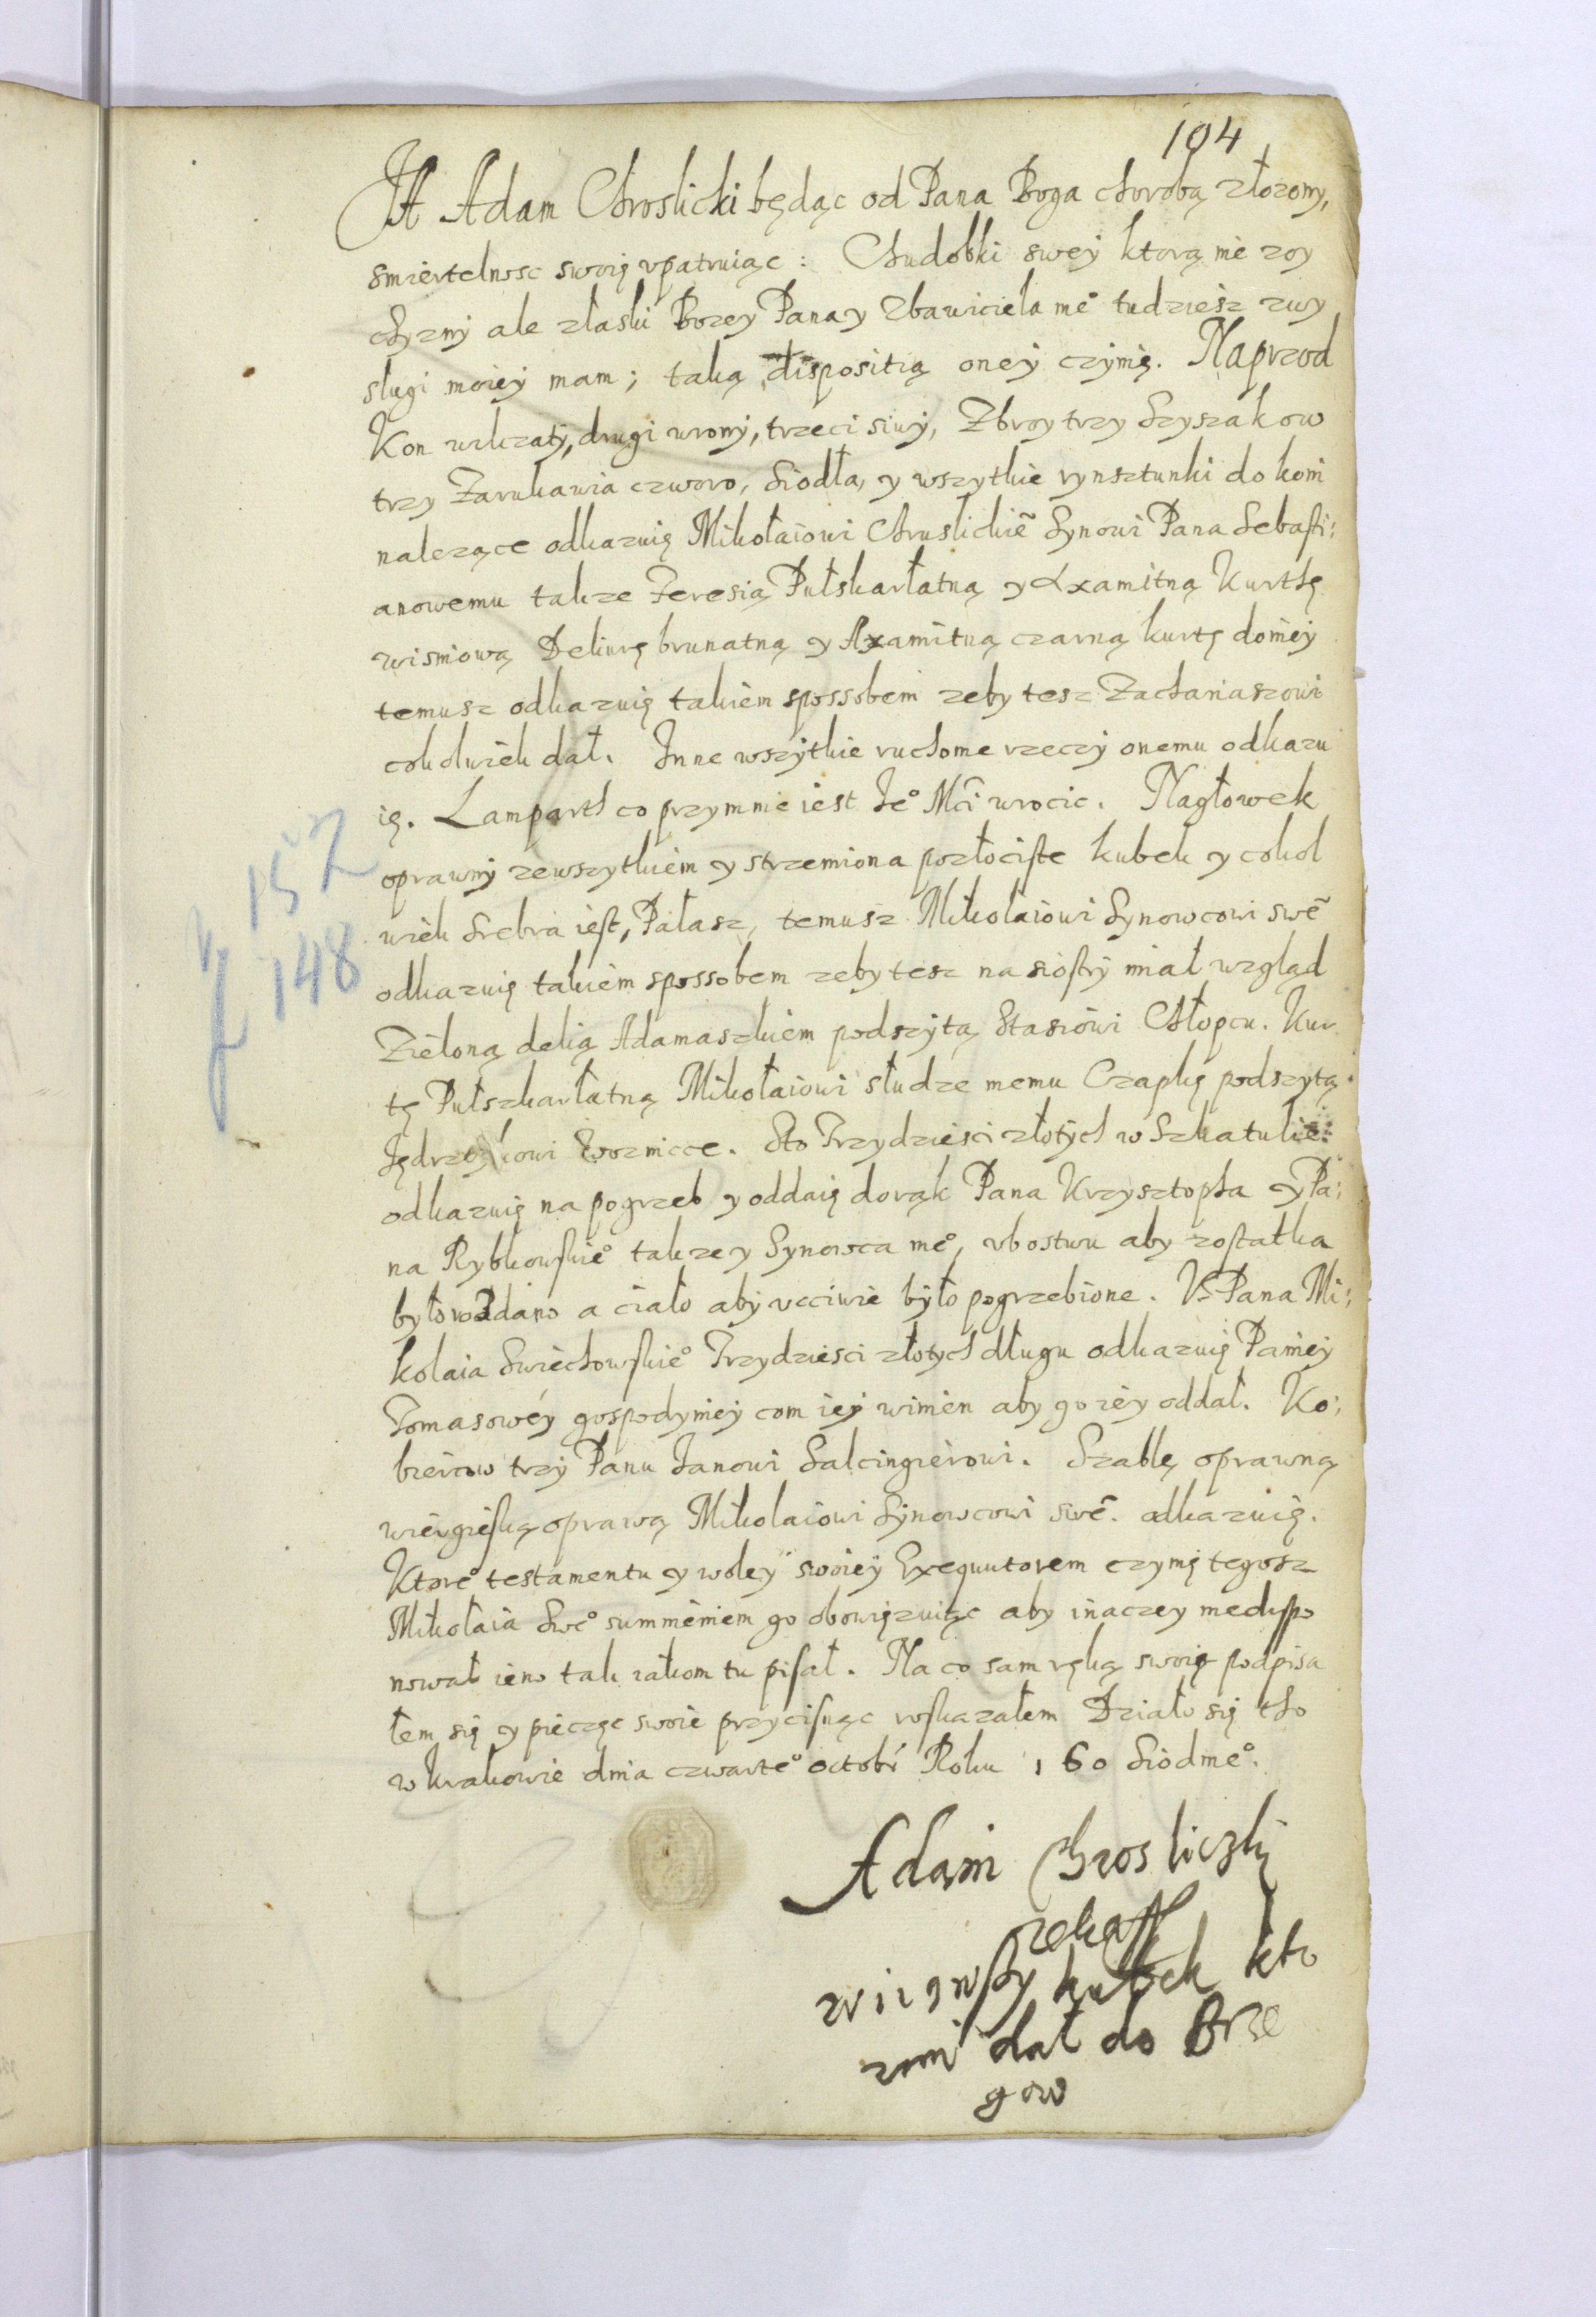 104
JA Adam Chroslicki będąc od Pana Boga chorobą złozony,
smiertelnosc swoię vpatruiąc: Chudobki swey ktorą nie zoy
czyzny ale złaski Bozey Pana y Zbawiciela me° tudziesz zwy
sługi moiey mam; taką dispositią oney czynię. Naprzod
Kon wilczaty, drugi wrony, trzeci siwy, Zbroy trzy Szyszakow
trzy Zarukawia czworo, Siodła, y wszytkie rynsztunki do koni
nalezące odkazuię Mikołaiowi Chruslickie~ Synowi Pana Sebasti:
anowemu takze Feresią Pułskarłatną y Axamitną Kurthę
wisniową Deliurę brunatną y Axamitną czarną kurtę doniey
temusz odkazuię takiem spossobem zeby tesz Zachariaszowi
cokolwiek dał. Inne wszytkie ruchome rzeczy onemu odkazu
ię. Lamparth co przymnie iest Je° Mći wrocic. Nagłowek
oprawny zewszytkiem y strzemiona pozłociste kubek y cokol
wiek Srebra iest, Pałasz, temusz Mikołaiowi Synowcowi swe~
odkazuię takiem spossobem zeby tesz na siostry miał wzgląd
Zieloną delią Adamaszkiem podszytą Stasiowi Chłopcu. Kur
tę Pułszkarłatną Mikołaiowi słudze memu Czapkę podszytą
woznicce. Sto Trzydziesci złotych w Szkatulie:
odkazuię na pogrzeb y oddaię dorąk Pana Krzysztopha y Pa:
na Rybkowskie° takze y Synowca me°, vbostwu aby zostatka
było rozdano a ciało aby vcciwie było pogrzebione. V Pana Mi:
kolaia Swiechowskie° Trzydziesci złotych długu odkazuię Paniey
Tomasowey gospodyniey com iey winien aby go iey oddał. Ko:
biercow trzy Panu Janowi Salcingierowi. Szablę oprawną
więgieską oprawą Mikolaiowi Synowcowi swe~. odkazuię.
Ktore° testamentu y woley swoiey Exequutorem czynię tegosz
Mikołaia Swe° summeniem go obowięzuiąc aby inaczey niedispo
nował ieno tak iakom tu pisał. Na co sam ręką swoię podpisa
łem się y pieczęc swoie przycisnąc roskazałem Działo się tho
w Krakowie dnia czwarte° octobr Roku 160 Siodme°.
Adam Chrosliczky
ręką
kubek kto
dał do Brze
gow
y 152
148